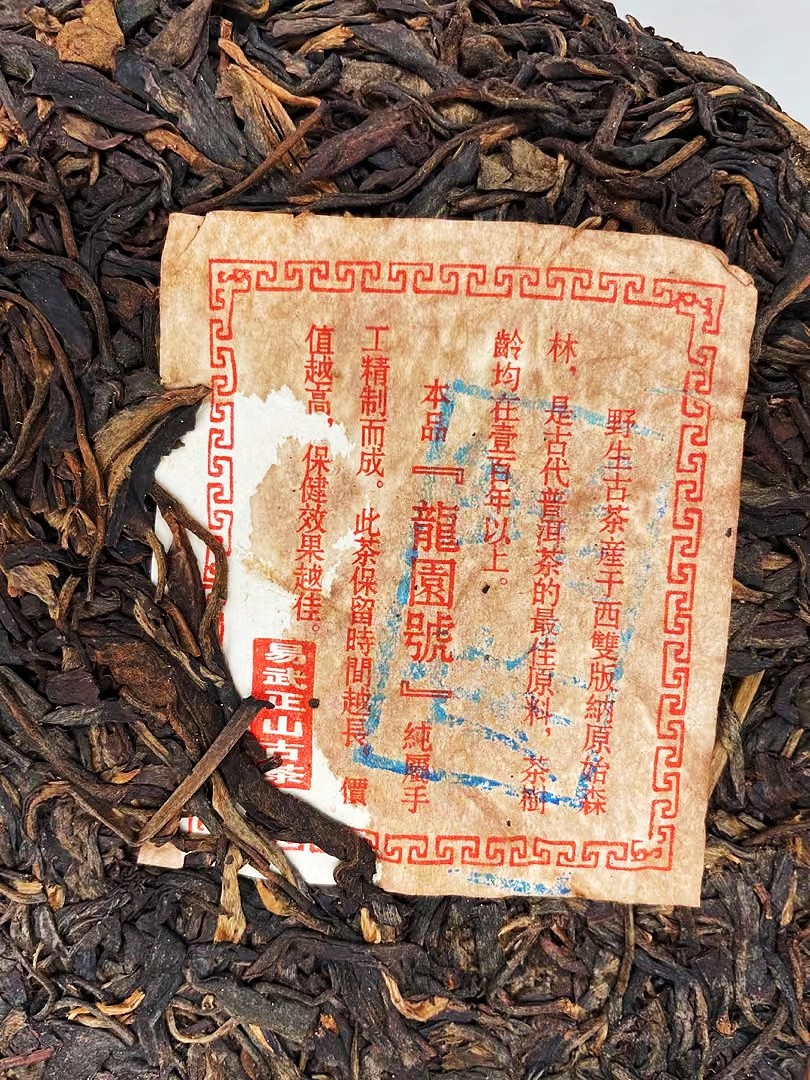 野生古茶產于西雙版納原始森
林，是古代普洱茶的最佳原料，茶樹
齡均在壹百年以上。
本品『龍園號』純屬手
工精制而成。此茶保留時間越長，價
值越高，保健效果越佳。
易武正山古茶